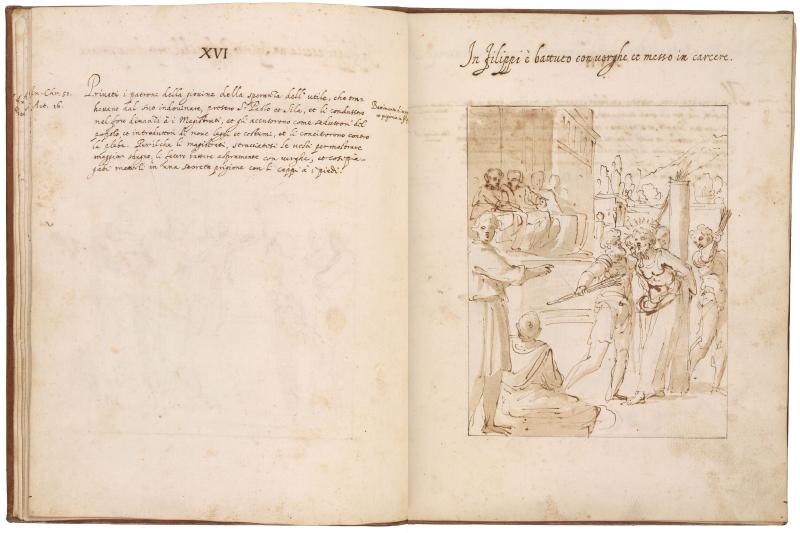 XVI
Act. 16.
Privati i patroni della giovine della speranza dell' utile, che tra-
hevano dal suo indovinare, presero S. Paolo et Sila, et li condussero
nel foro dinanzi à i Magistrati, et gli accusorono come seduttori del
popolo, et introduttori di nove leggi et costumi, et li concitorono contro
la plebe. Per il che li magistrati, stracciatesi le vesti per mostrare
maggior sdegno, li fecero battere aspramente con verghe, et così pia-
gati metterli in una secreta prigione con li ceppi à i piedi.
In Filippi è battuto con verghe et messo in carcere.